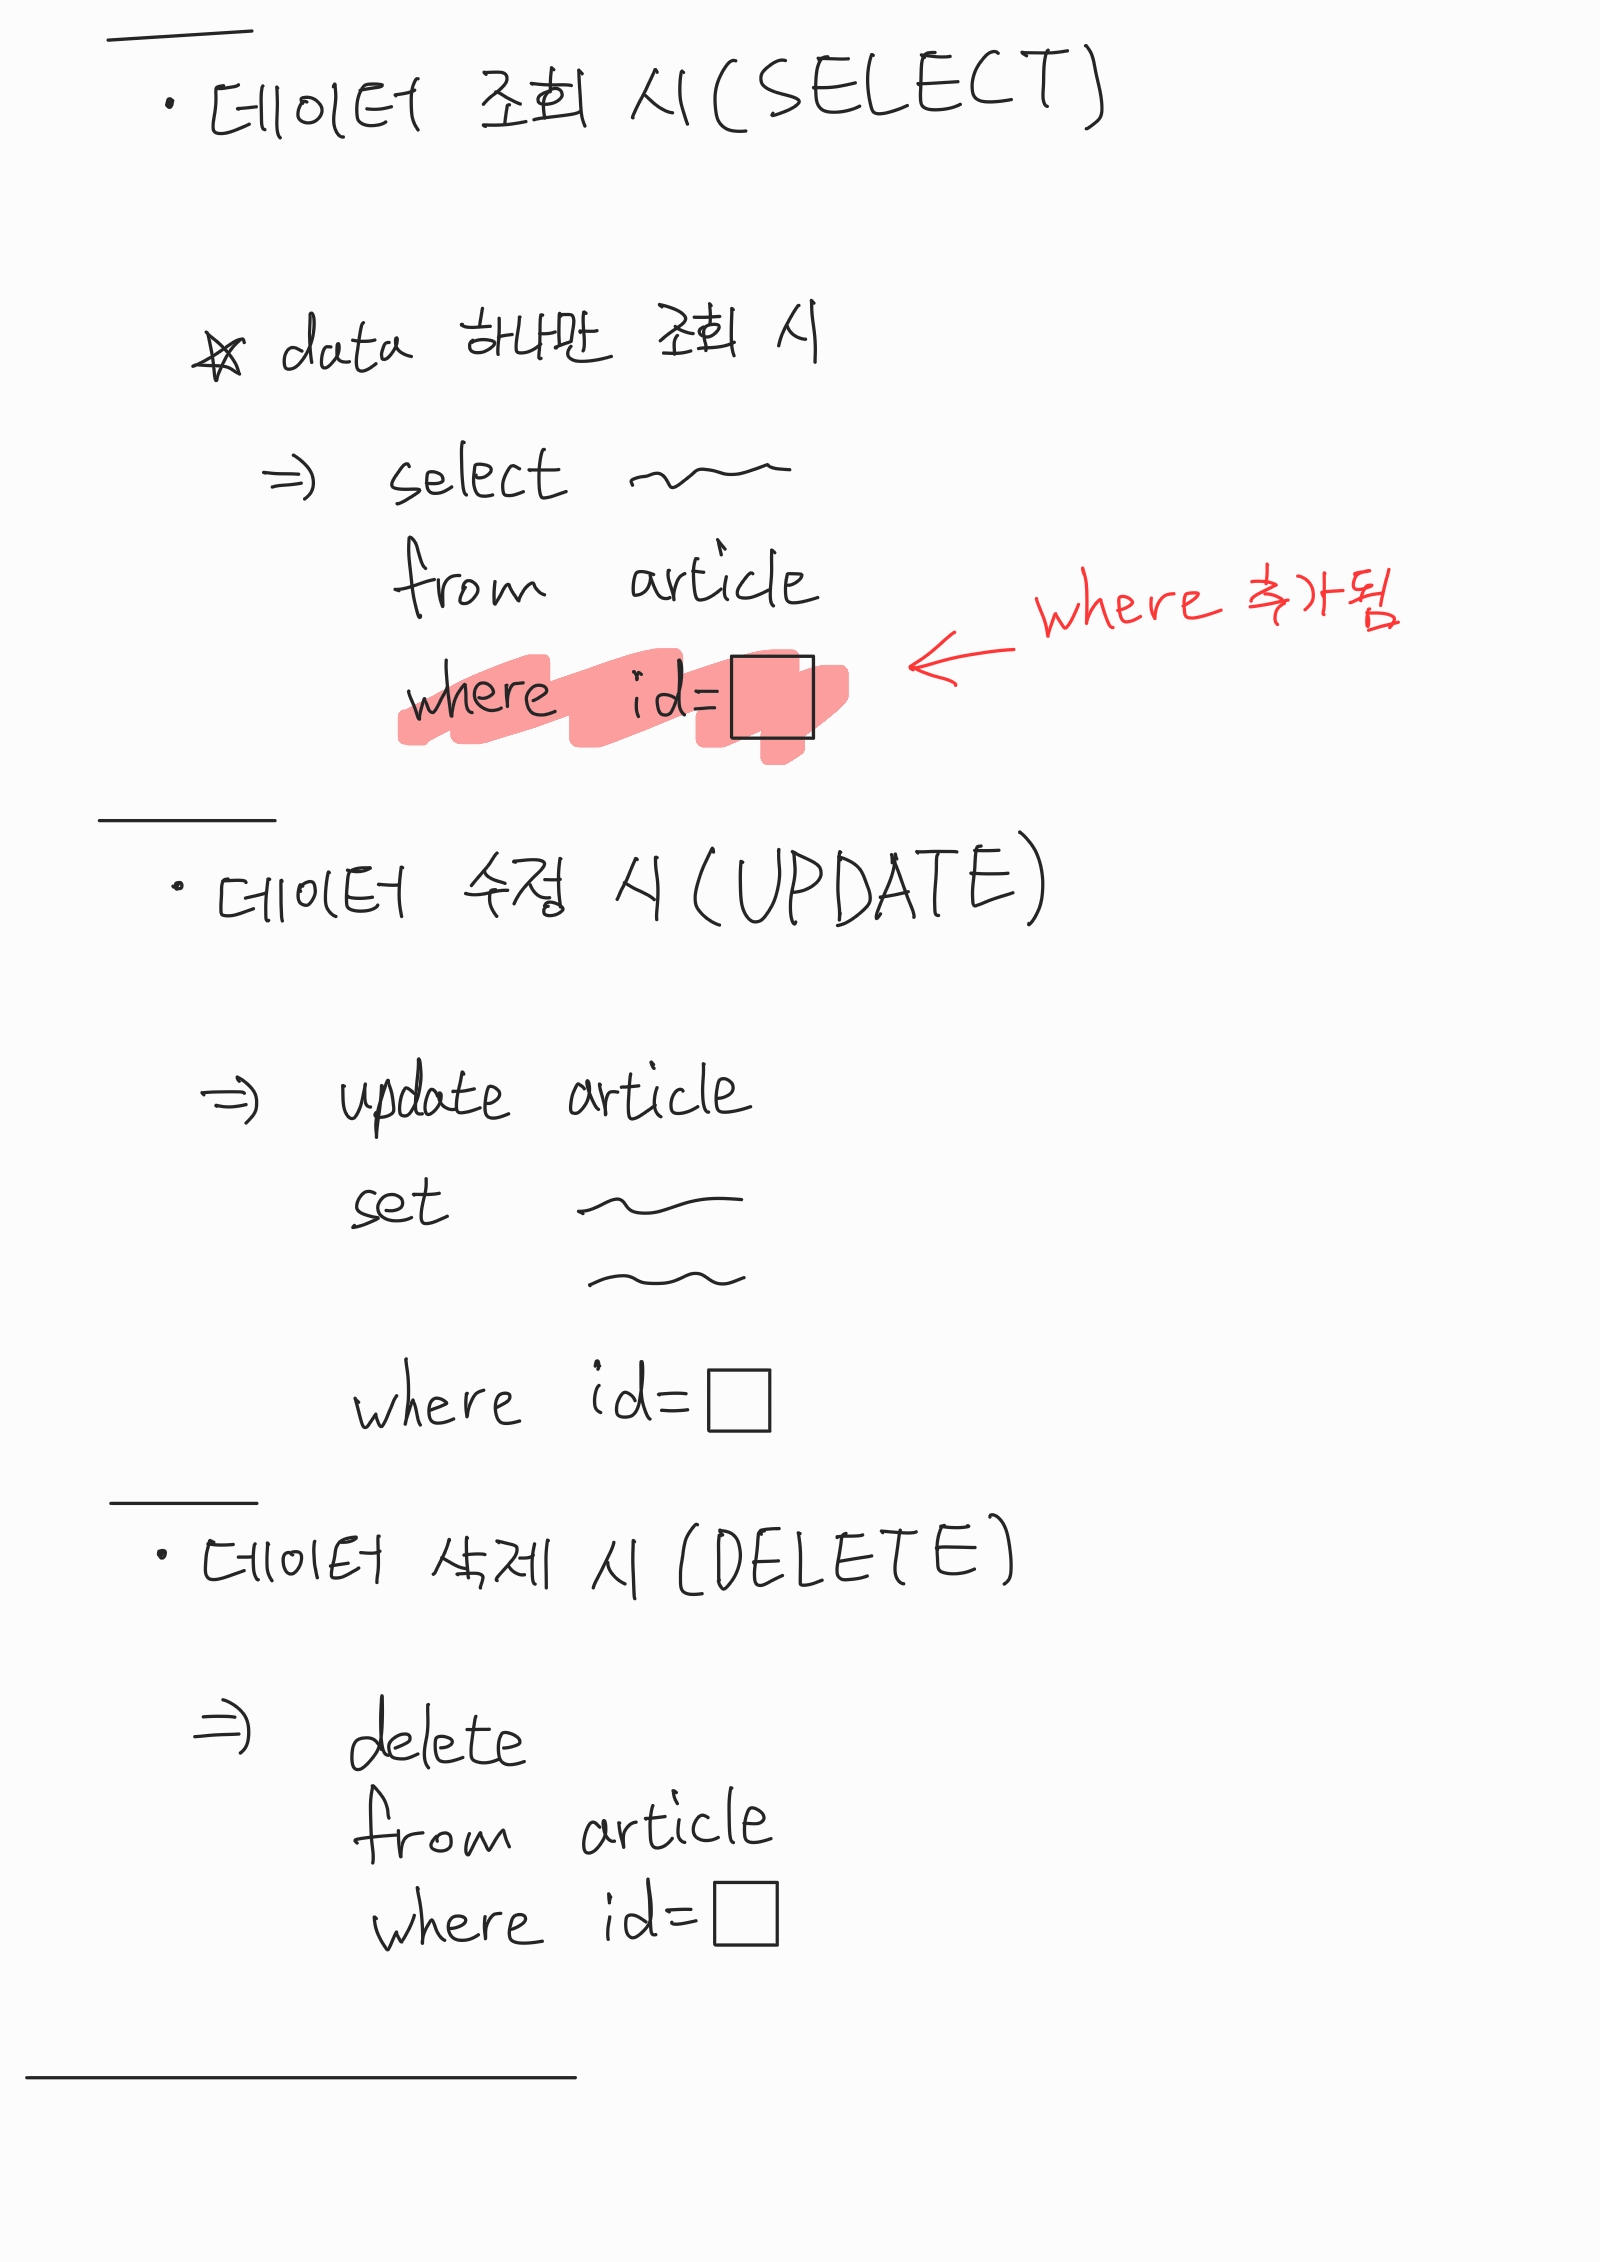 · 데이터 조회 시(SELECT)
☆ data 하나만 조회 시
⇒ select
from article
where id=□
← where 추가됨
· 데이터 수정 시(UPDATE)
⇒ update article
set
where id=□
· 데이터 삭제 시(DELETE)
⇒ delete
from article
where id=□